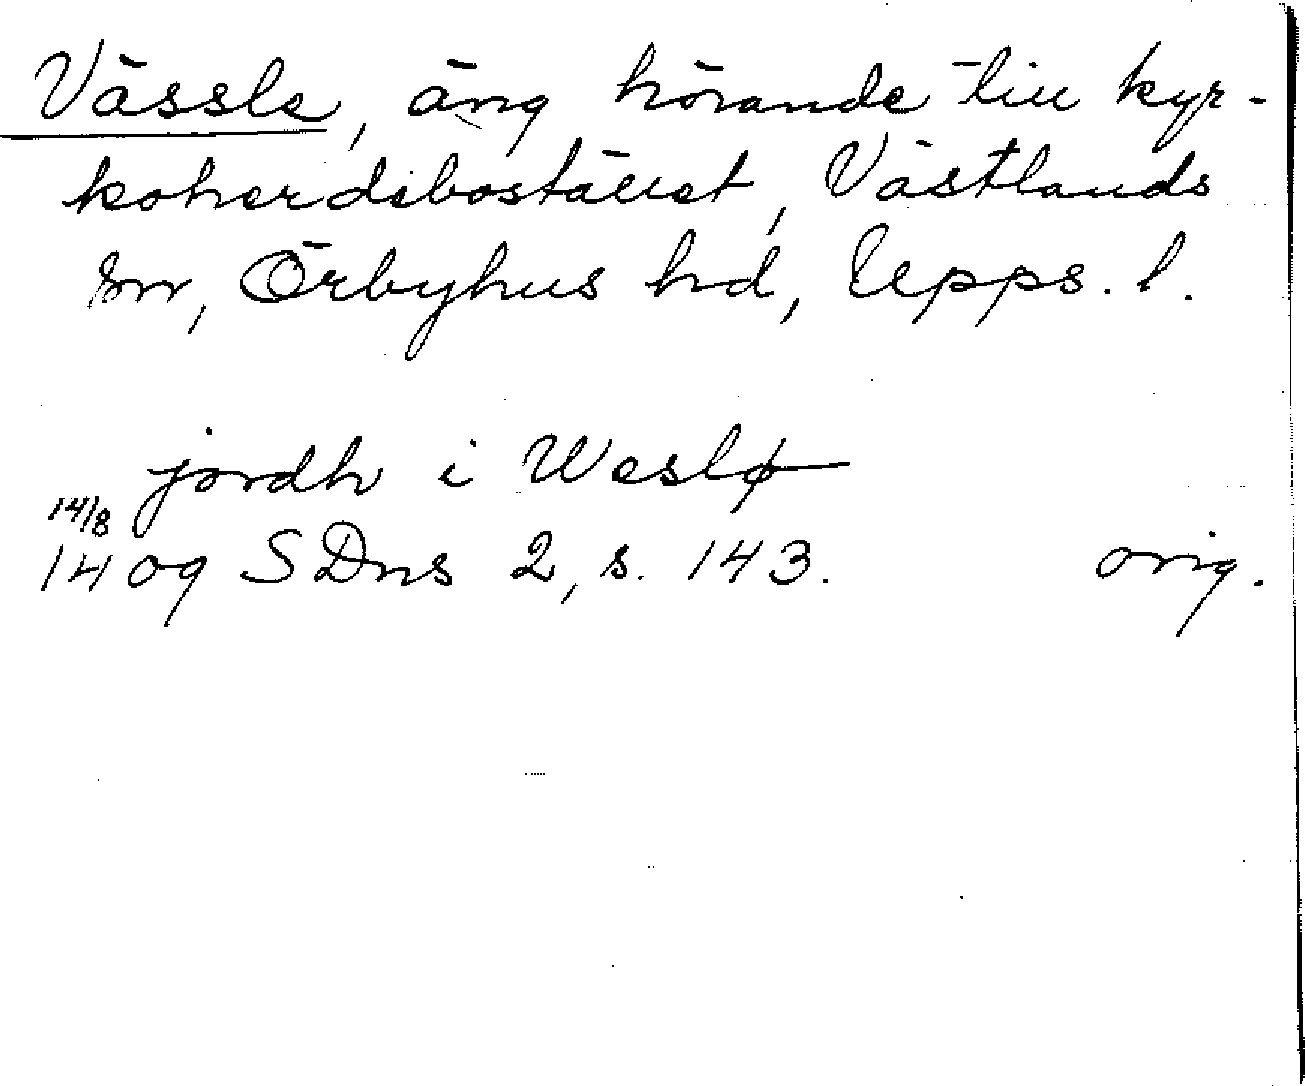 Vässle, äng hörande till kyr-
koherdebostället, Västlands
sn, Örbyhus hd, Upps. l.
jordh i Weslø
14/8
1409 SDns 2, s. 143. orig.